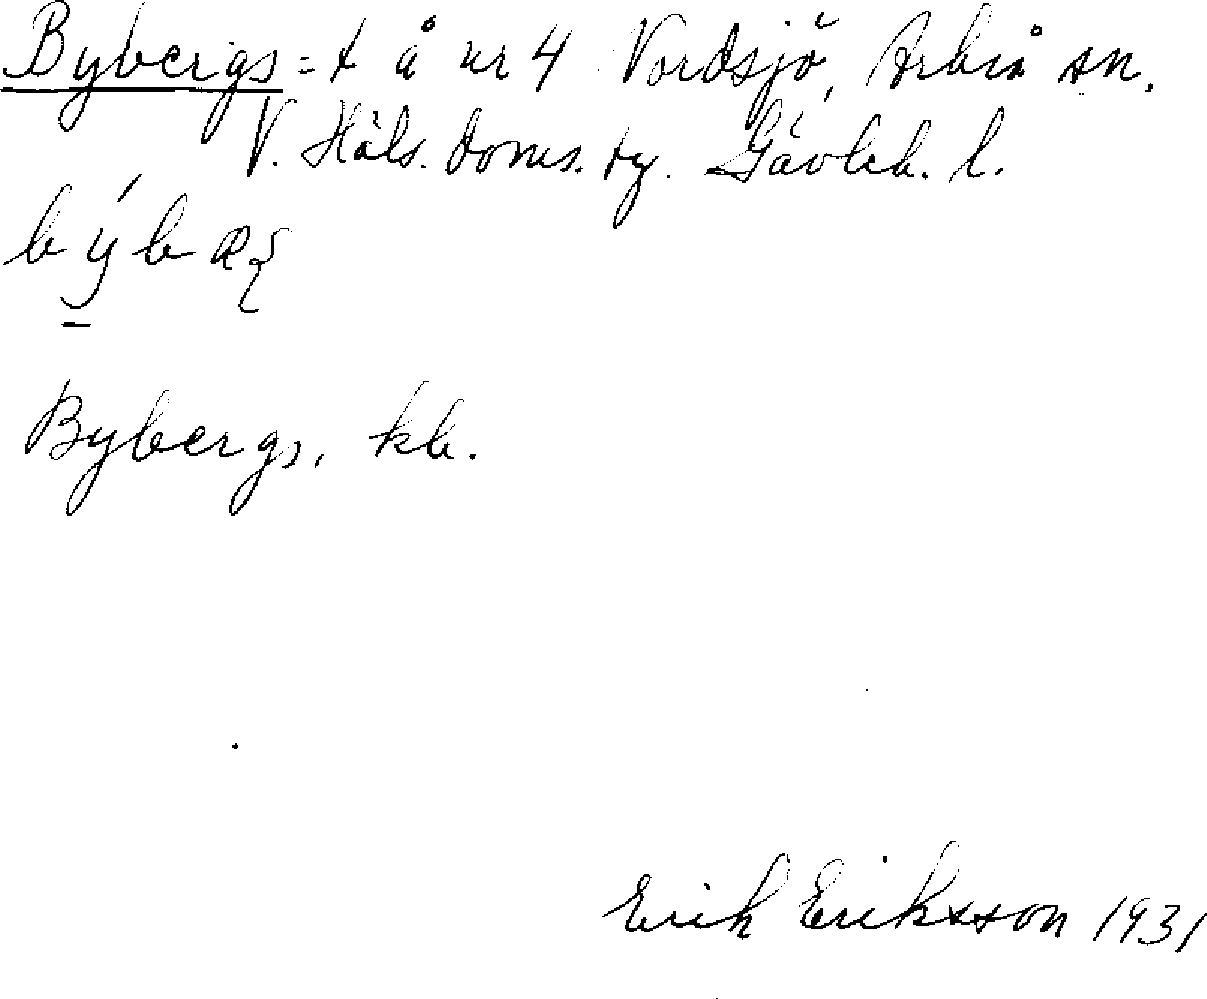 Bybergs = t å nr 4 Vordsjö, Arbrå sn.
V. Häls. doms. tg. Gävleb. l.
býbæ
Bybergs, kb.
Erik Eriksson 1931